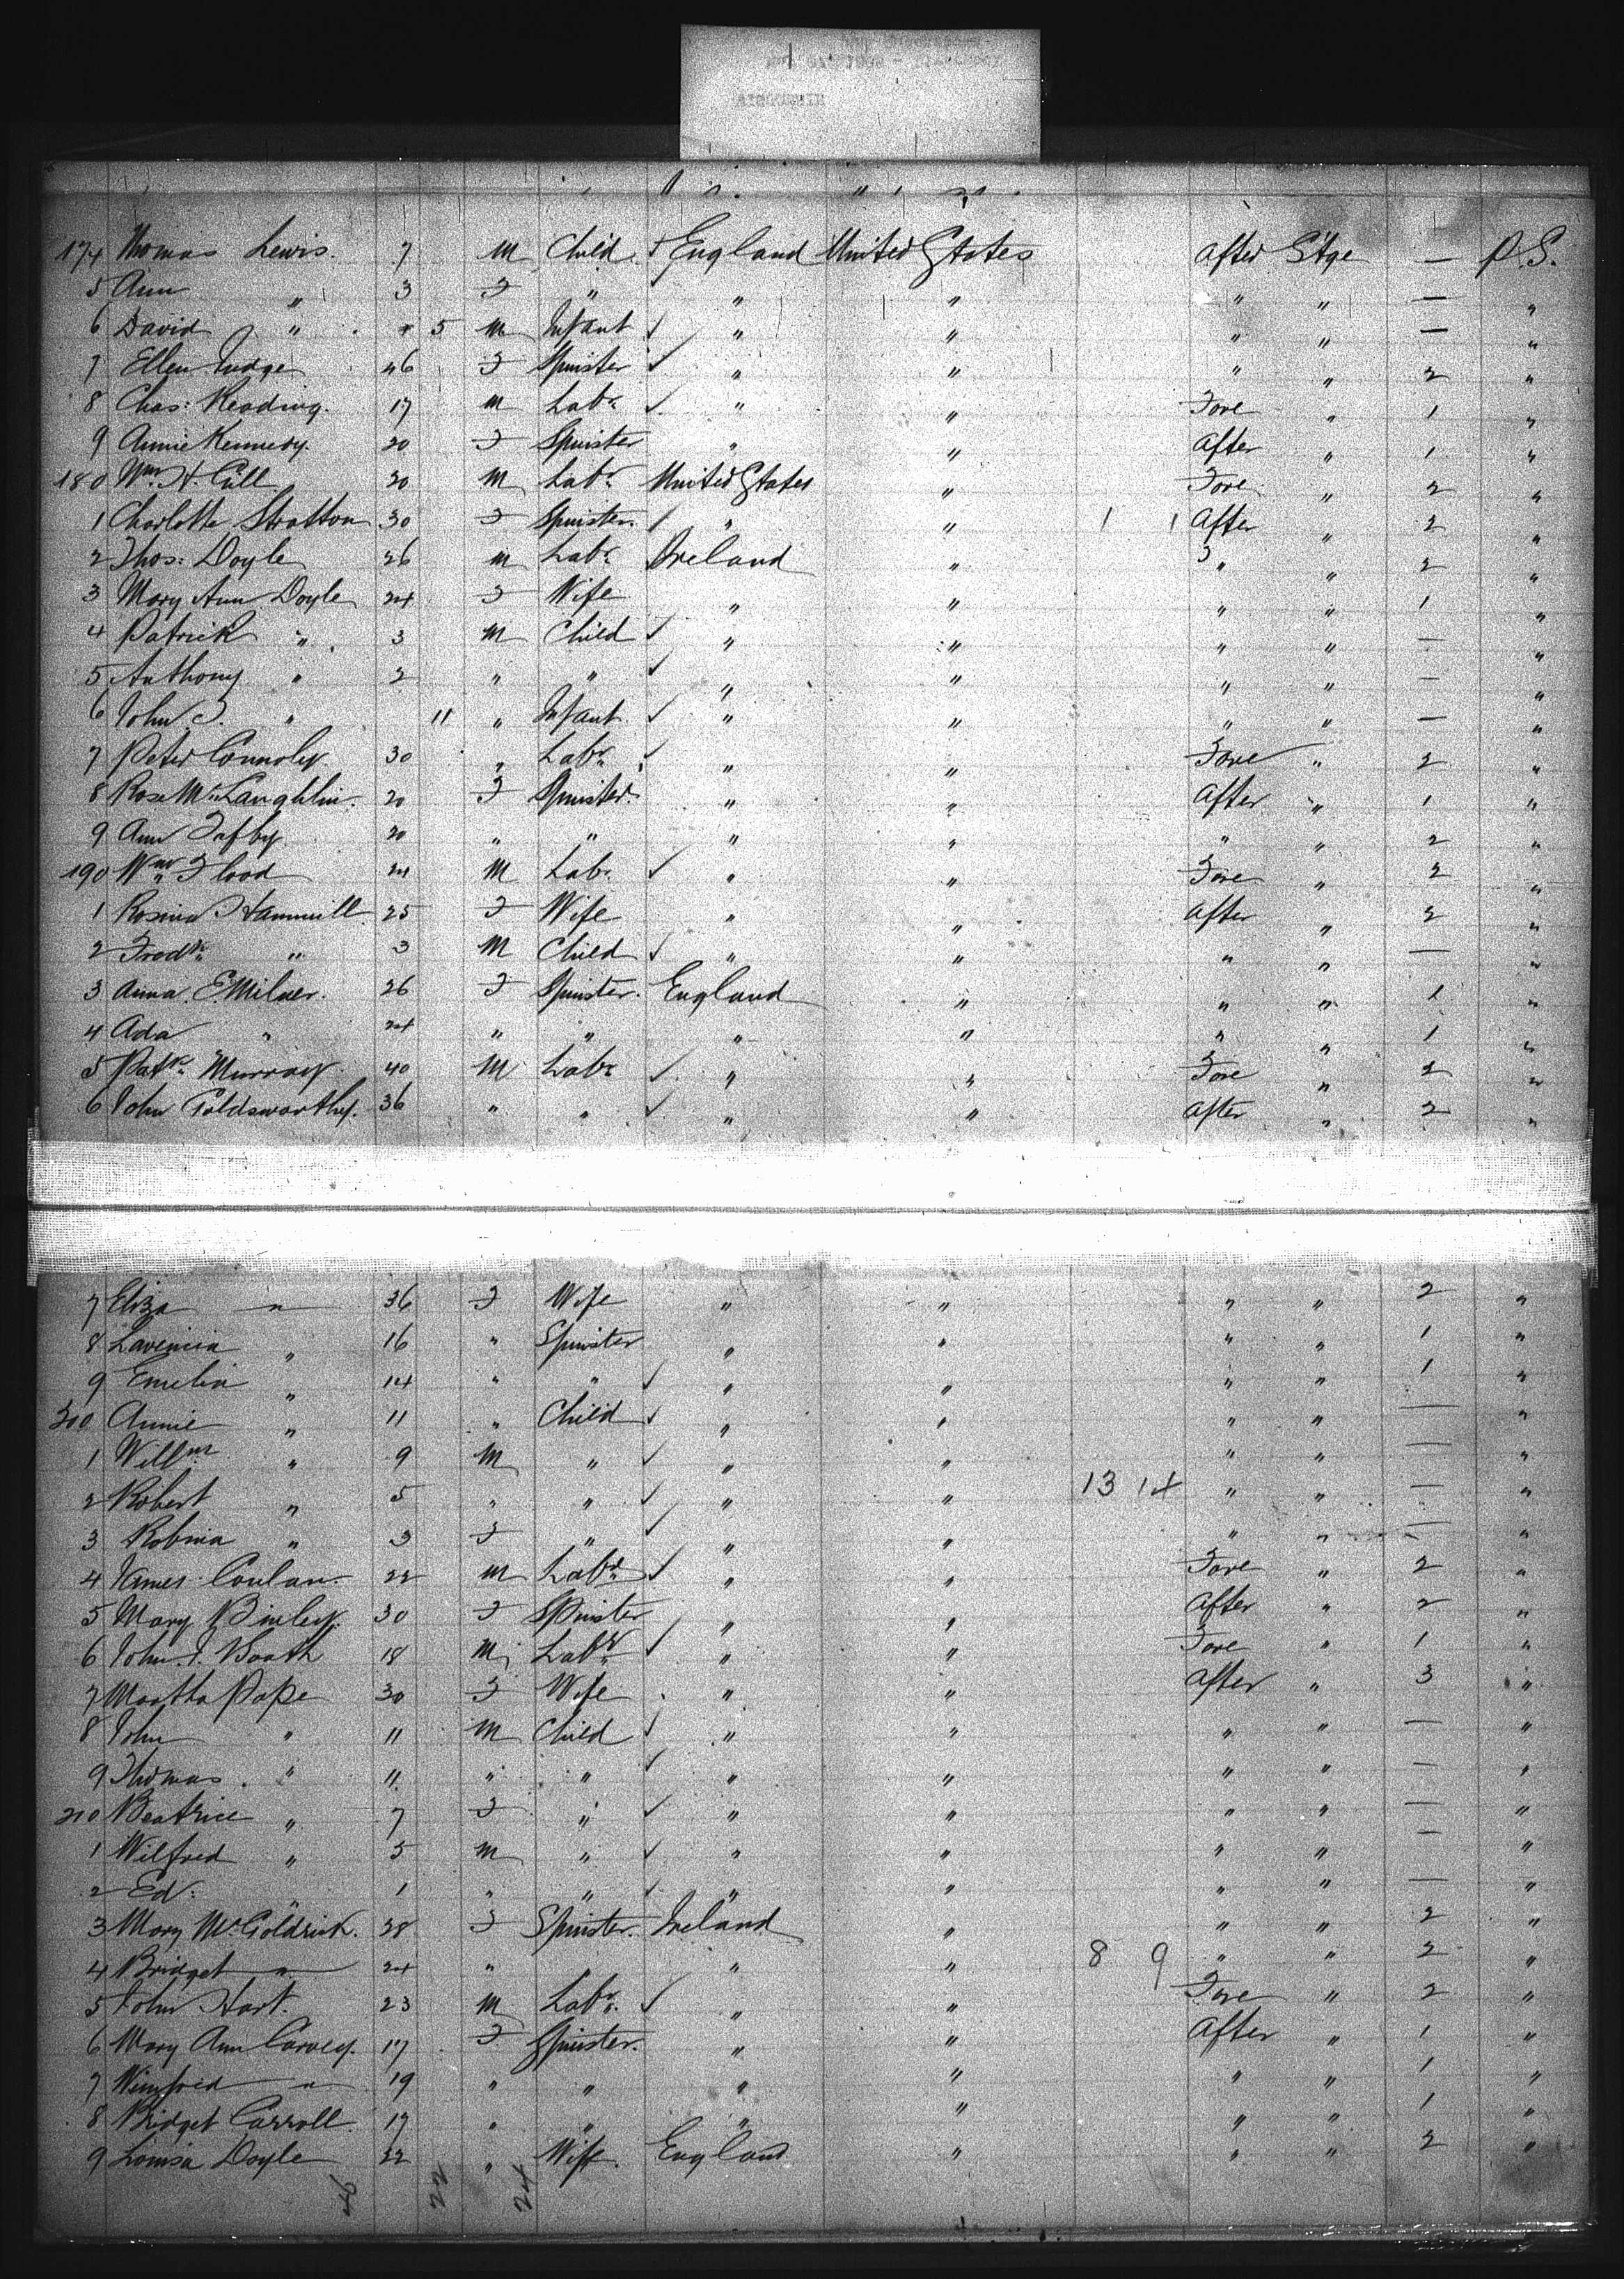 174 Thomas Lewis. 7 M Child England United States After Stge — P.S.
5 Ann " 3 F " " " " " — "
6 David " 5 M Infant ✓ " " " " — "
7 Ellen Judge 46 F Spinster ✓ " " " " 2 "
8 Chas: Reading. 17 M Labr ✓ " " Fore " 1 "
9 Annie Kennedy. 20 F Spinster " " After " 1 "
180 Wm H. Cull 20 M Labr United States " Fore " 2 "
1 Charlotte Stratton 30 F Spinster. " " 1 1 After " 2 "
2 Thos: Doyle 26 M Labr Ireland " " " 2 "
3 Mary Ann Doyle 24 F Wife " " " " 1 "
4 Patrick " 3 M Child ✓ " " " " — "
5 Anthony " 2 " " ✓ " " " " — "
6 John J. " 11 " Infant ✓ " " " " — "
7 Peter Connoley. 30 " Labr ✓ " " Fore " 2 "
8 Rose McLaughlin. 20 F Spinster. " " After " 1 "
9 Ann 20 " " " " " " 2 "
190 Wm Flood 24 M Labr ✓ " " Fore " 2 "
1 Rosina Hammill 25 F Wife " " After " 2 "
2 Fredk " 3 M Child ✓ " " " " — "
3 Anna. E. Milner. 26 F Spinster. England " " " 1 "
4 Ada " 24 " " " " " " 1 "
5 Patk Murray. 40 M Labr ✓ " " Fore " 2 "
6 John Goldsworthy. 36 " " ✓ " " After " 2 "
7 Eliza " 36 F Wife " " " " 2 "
8 Lavenia " 16 " Spinster " " " " 1 "
9 Emelia " 14 " " ✓ " " " " 1 "
200 Annie " 11 " Child ✓ " " " " — "
1 Willm " 9 M " ✓ " " " " — "
2 Robert " 5 " " ✓ " " 13 14 " " — "
3 Robina " 3 F " ✓ " " " " — "
4 James Conlan. 22 M Labr ✓ " " Fore " 2 "
5 Mary Binley. 30 F Spinster " " After " 2 "
6 John. J. Booth 18 M Labr ✓ " " Fore " 1 "
7 Martha Pope 30 F Wife " " After " 3 "
8 John " 11 M Child ✓ " " " " — "
9 Thomas " 11 " " ✓ " " " " — "
210 Beatrice " 7 F " ✓ " " " " — "
1 Wilfred " 5 M " ✓ " " " " — "
2 Ed: " 1 " " ✓ " " " " — "
3 Mary McGoldrick. 28 F Spinster. Ireland " " " 2 "
4 Bridget " 24 " " " " 8 9 " " 2 "
5 John Hart. 23 M Labr ✓ " " Fore " 2 "
6 Mary Ann Garvey. 17 F Spinster. " " After " 1 "
7 Winifred " 19 " " " " " " 1 "
8 Bridget Carroll. 17 " " " " " " 1 "
9 Louisa Doyle 22 " Wife. England " " " 2 "